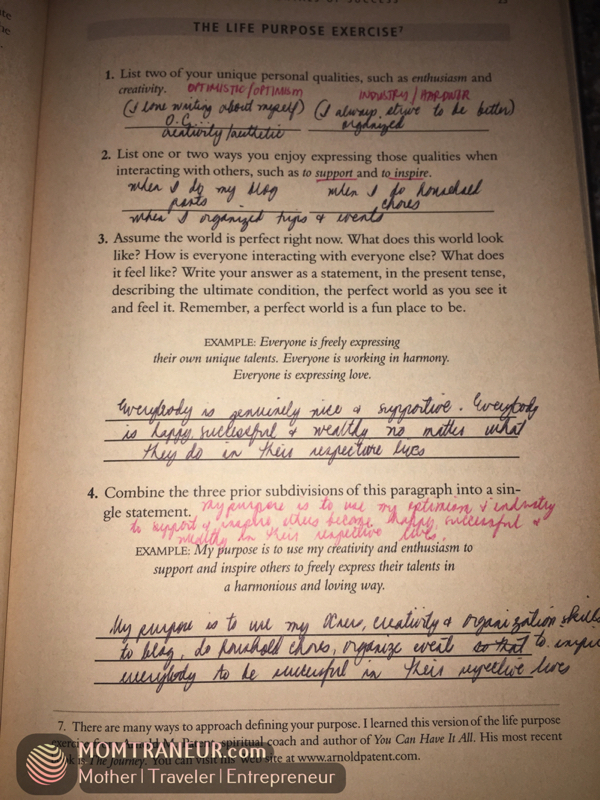 THE LIFE PURPOSE EXERCISE⁷
1. List two of your unique personal qualities, such as enthusiasm and
creativity. OPTIMISTIC/OPTIMISM INDUSTRY/
(I love writing about myself) (I always strive to be better)
O.C. organized
creativity/aesthetic
2. List one or two ways you enjoy expressing those qualities when
interacting with others, such as to support and to inspire.
when I do my blog when I do household
posts chores
when I organized trips & events
3. Assume the world is perfect right now. What does this world look
like? How is everyone interacting with everyone else? What does
it feel like? Write your answer as a statement, in the present tense,
describing the ultimate condition, the perfect world as you see it
and feel it. Remember, a perfect world is a fun place to be.
EXAMPLE: Everyone is freely expressing
their own unique talents. Everyone is working in harmony.
Everyone is expressing love.
Everybody is genuinely nice & supportive. Everybody
is happy, successful & wealthy no matter what
they do in their respective lives
4. Combine the three prior subdivisions of this paragraph into a sin-
gle statement. My purpose is to use my optimism & industry
to support & inspire others become happy, successful &
wealthy in their respective lives.
EXAMPLE: My purpose is to use my creativity and enthusiasm to
support and inspire others to freely express their talents in
a harmonious and loving way.
My purpose is to use my creativity & organization skills
to blog, do houshold chores, organize event so that to
everybody to be successful in their respective lives
7. There are many ways to approach defining your purpose. I learned this version of the life purpose
spiritual coach and author of You Can Have It All. His most recent
is The Journey. You can visit his web site at www.arnoldpatent.com.
MOMTRANEUR.com
Mother | Traveler | Entrepreneur